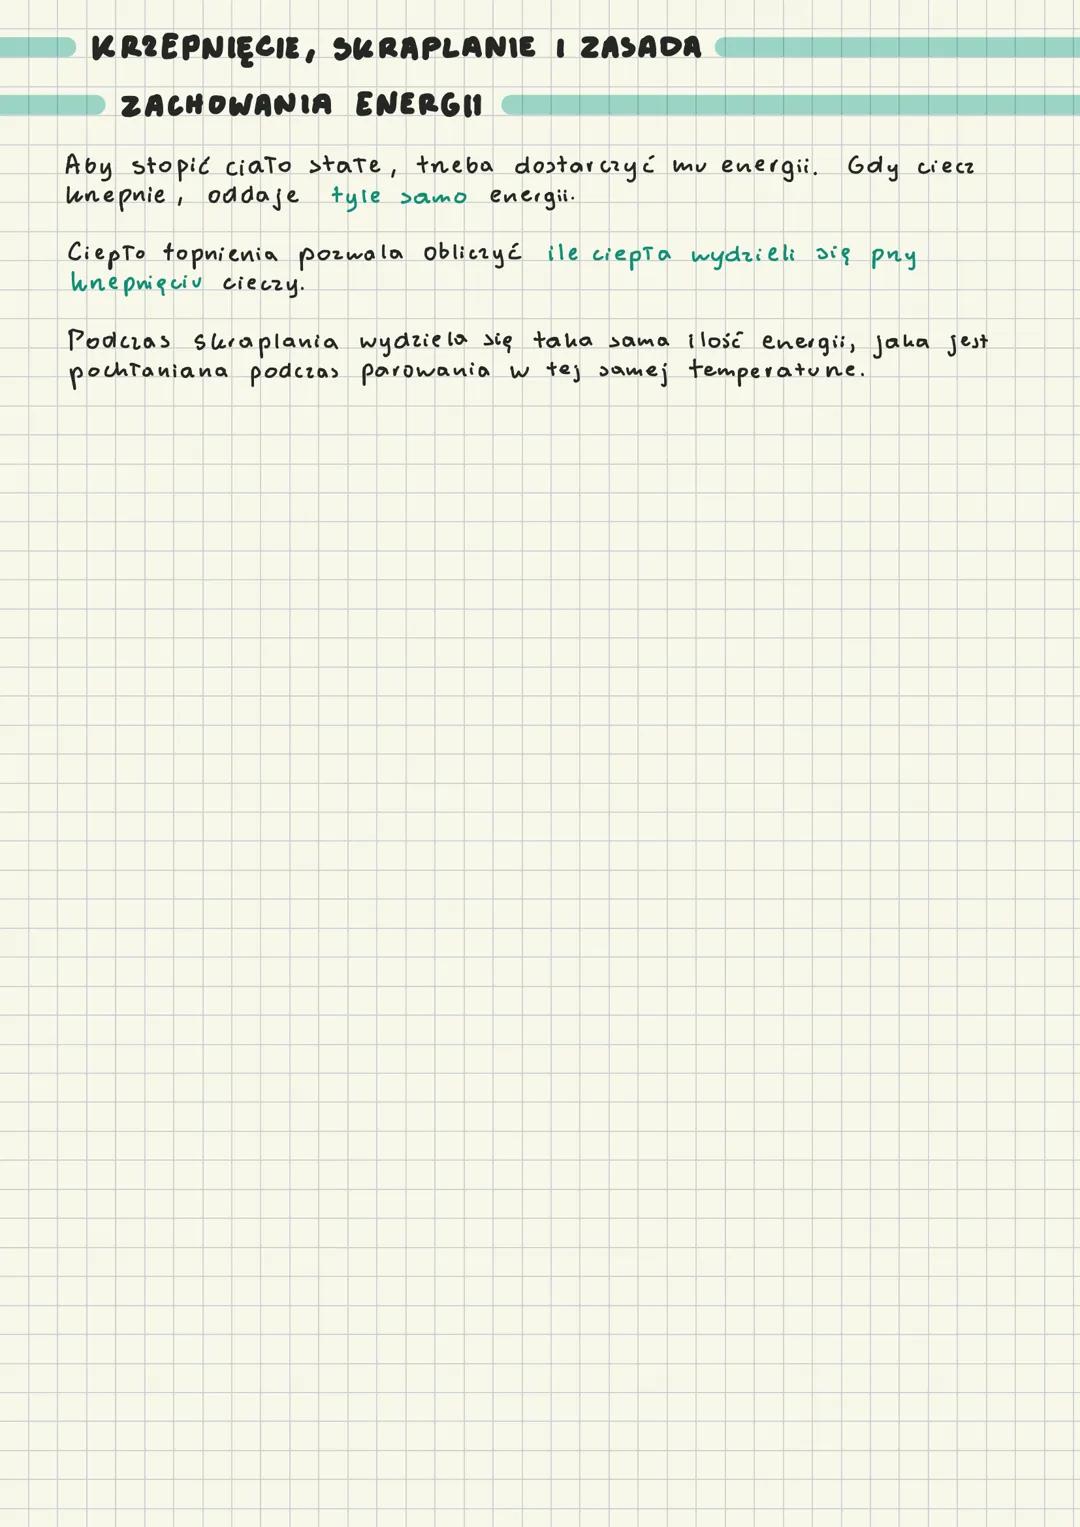 KRZEPNIĘCIE, SKRAPLANIE I ZASADA
ZACHOWANIA ENERGII
Aby stopić ciało stałe, trzeba dostarczyć mu energii. Gdy ciecz
krzepnie, oddaje tyle samo energii.
Ciepło topnienia pozwala obliczyć ile ciepła wydzieli się przy
krzepnięciu cieczy.
Podczas skraplania wydziela się taka sama ilość energii, jaka jest
pochłaniana podczas parowania w tej samej temperaturze.